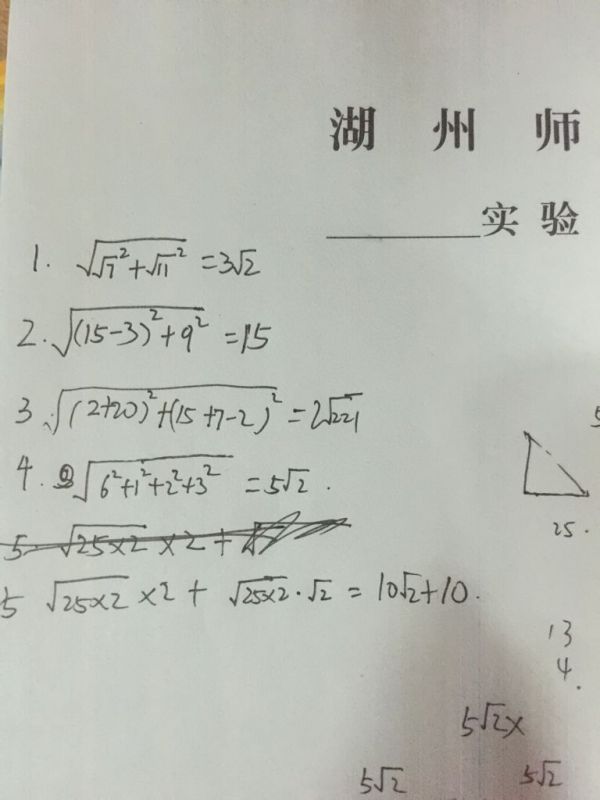 湖州师
实验
1. √(√7²+√11²) =3√2
2. √((15-3)²+9²) =15
3 √((2+20)²+(15+7-2)²) =2√221
4. √(6²+1²+2²+3²) =5√2.
5 √(25×2) ×2 + √
5 √(25×2) ×2 + √(25×2)·√2 = 10√2+10.
25.
13
4.
5√2×
5√2 5√2